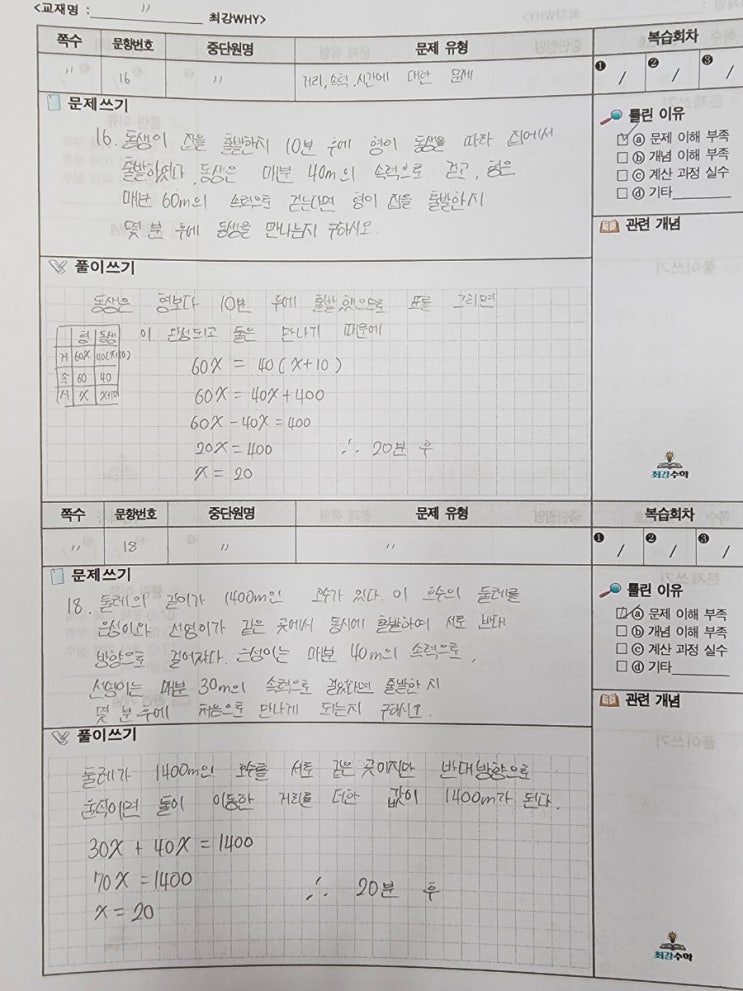 <교재명 : 〃 최강WHY>
쪽수 문항번호 중단원명 문제 유형 복습회차
〃 16 〃 거리, 속력, 시간에 대한 문제 ❶ / ❷ / ❸ /
문제쓰기
16. 동생이 집을 출발한지 10분 후에 형이 동생을 따라 집에서
출발하였다. 동생은 매분 40m의 속력으로 걷고, 형은
매분 60m의 속력으로 걷는다면 형이 집을 출발한지
몇 분 후에 동생을 만나는지 구하시오.
틀린 이유
ⓐ 문제 이해 부족
ⓑ 개념 이해 부족
ⓒ 계산 과정 실수
ⓓ 기타
관련 개념
풀이쓰기
동생은 형보다 10분 후에 출발했으므로 표를 그리면
형 동생
거 60x 40(x+10)
속 60 40
시 x x+10
이 완성되고 둘은 만나기 때문에
60x = 40(x+10)
60x = 40x+400
60x-40x=400
20x=400 ∴ 20분 후
x=20
최강수학
쪽수 문항번호 중단원명 문제 유형 복습회차
〃 18 〃 〃 ❶ / ❷ / ❸ /
문제쓰기
18. 둘레의 길이가 1400m인 호수가 있다. 이 호수의 둘레를
은성이와 선영이가 같은 곳에서 동시에 출발하여 서로 반대
방향으로 걸어갔다. 은성이는 매분 40m의 속력으로,
선영이는 매분 30m의 속력으로 걸었다면 출발한 지
몇 분 후에 처음으로 만나게 되는지 구하시오.
틀린 이유
ⓐ 문제 이해 부족
ⓑ 개념 이해 부족
ⓒ 계산 과정 실수
ⓓ 기타
관련 개념
풀이쓰기
둘레가 1400m인 호수를 서로 같은 곳이지만 반대방향으로
움직이면 둘이 이동한 거리를 더한 값이 1400m가 된다.
30x + 40x = 1400
70x = 1400
x = 20
∴ 20분 후
최강수학